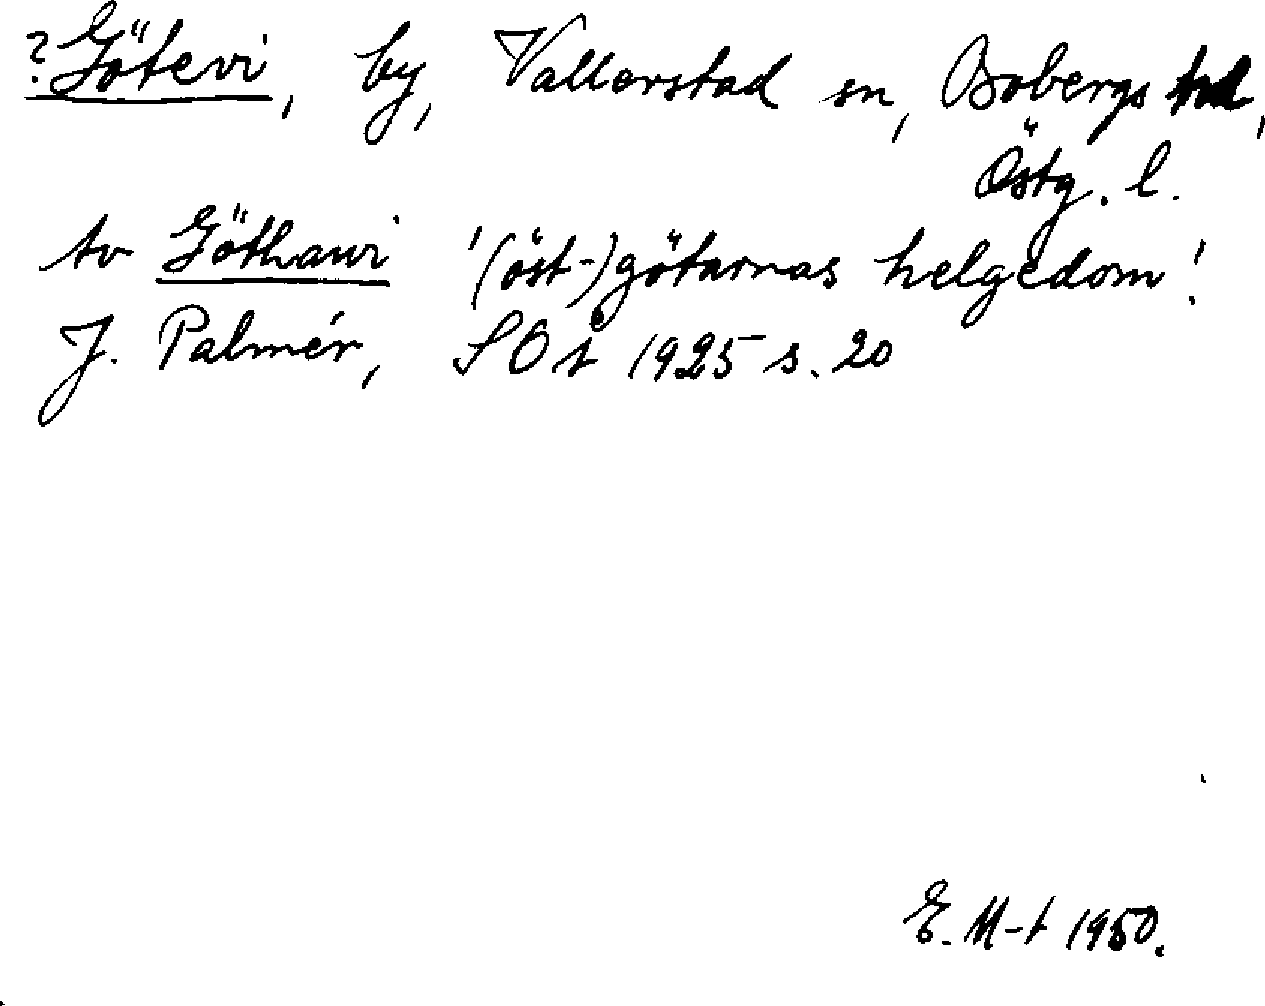 ?Götevi, by, Vallerstad sn, Bobergs hd,
Östg. l.
av Göthawi '(öst-)götarnas helgedom'.
J. Palmér, SOÅ 1925 s. 20
E. M-t 1950.